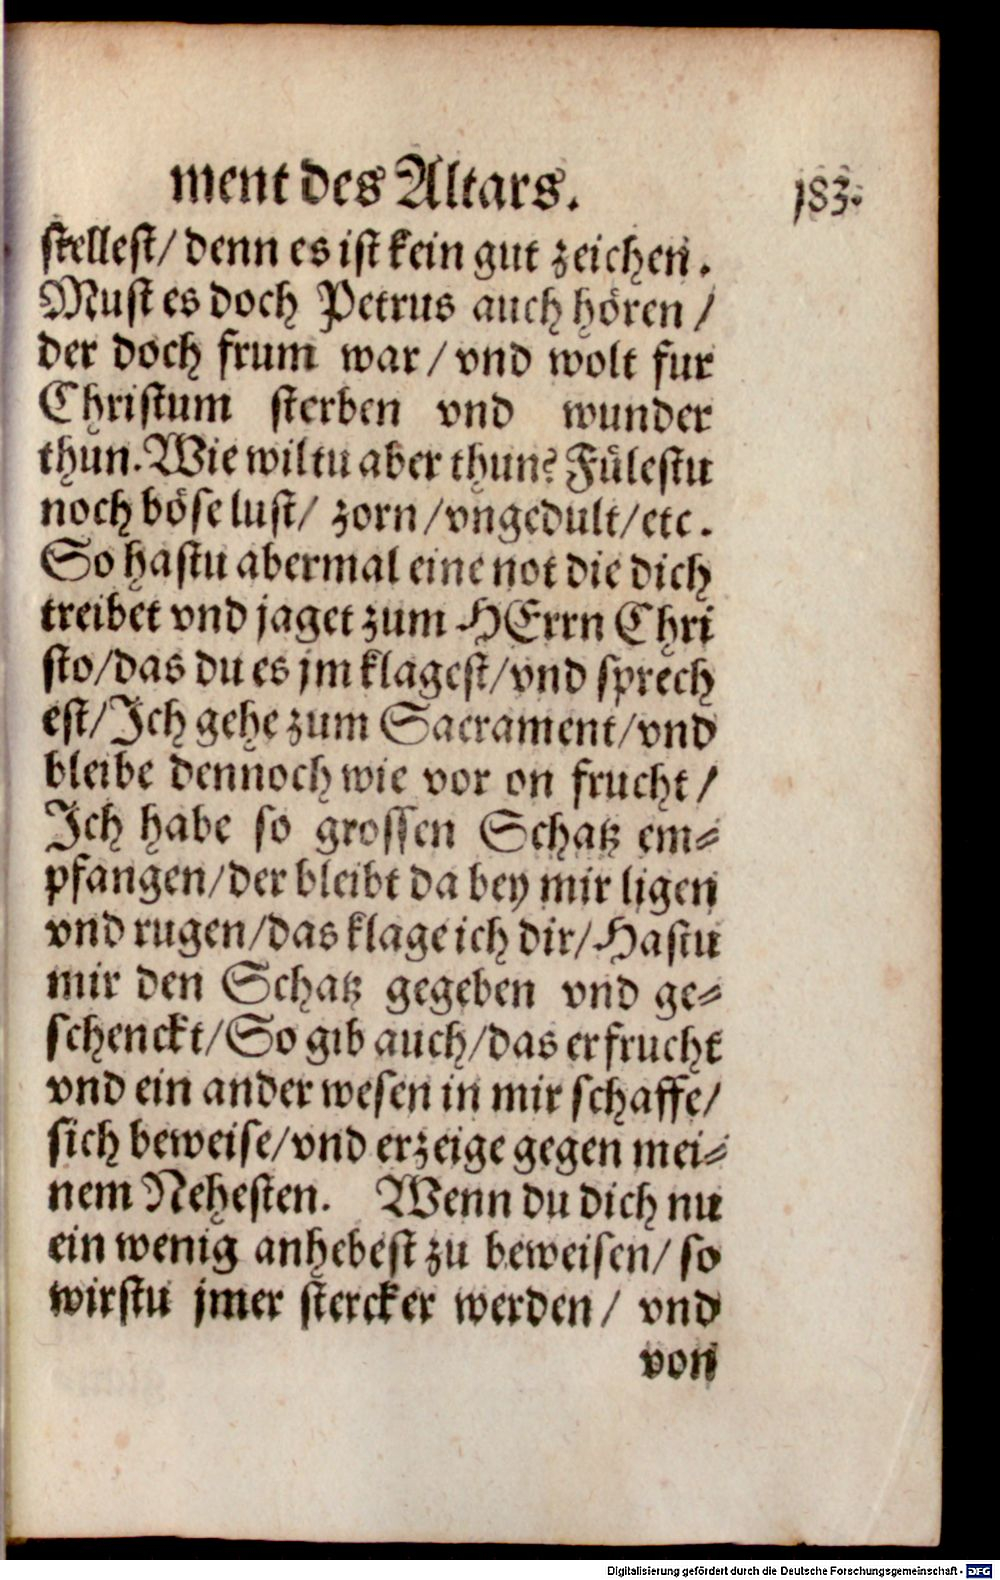 ment des Altars. 183.
stellest/ denn es ist kein gut zeichen.
Must es doch Petrus auch hören /
der doch frum war / vnd wolt fur
Christum sterben vnd wunder
thun. Wie wiltu aber thun? Fülestu
noch böse lust/ zorn /vngedult/etc.
So hastu abermal eine not die dich
treibet vnd jaget zum HErrn Chri
sto/das du es jm klagest/vnd sprech
est/Ich gehe zum Sacrament/vnd
bleibe dennoch wie vor on frucht /
Ich habe so grossen Schatz em⸗
pfangen/der bleibt da bey mir ligen
vnd rugen/das klage ich dir/Hastu
mir den Schatz gegeben vnd ge⸗
schenckt/So gib auch/das er frucht
vnd ein ander wesen in mir schaffe/
sich beweise/vnd erzeige gegen mei⸗
nem Nehesten. Wenn du dich nu
ein wenig anhebest zu beweisen/ so
wirstu jmer stercker werden / vnd
von
Digitalisierung gefördert durch die Deutsche Forschungsgemeinschaft - DFG